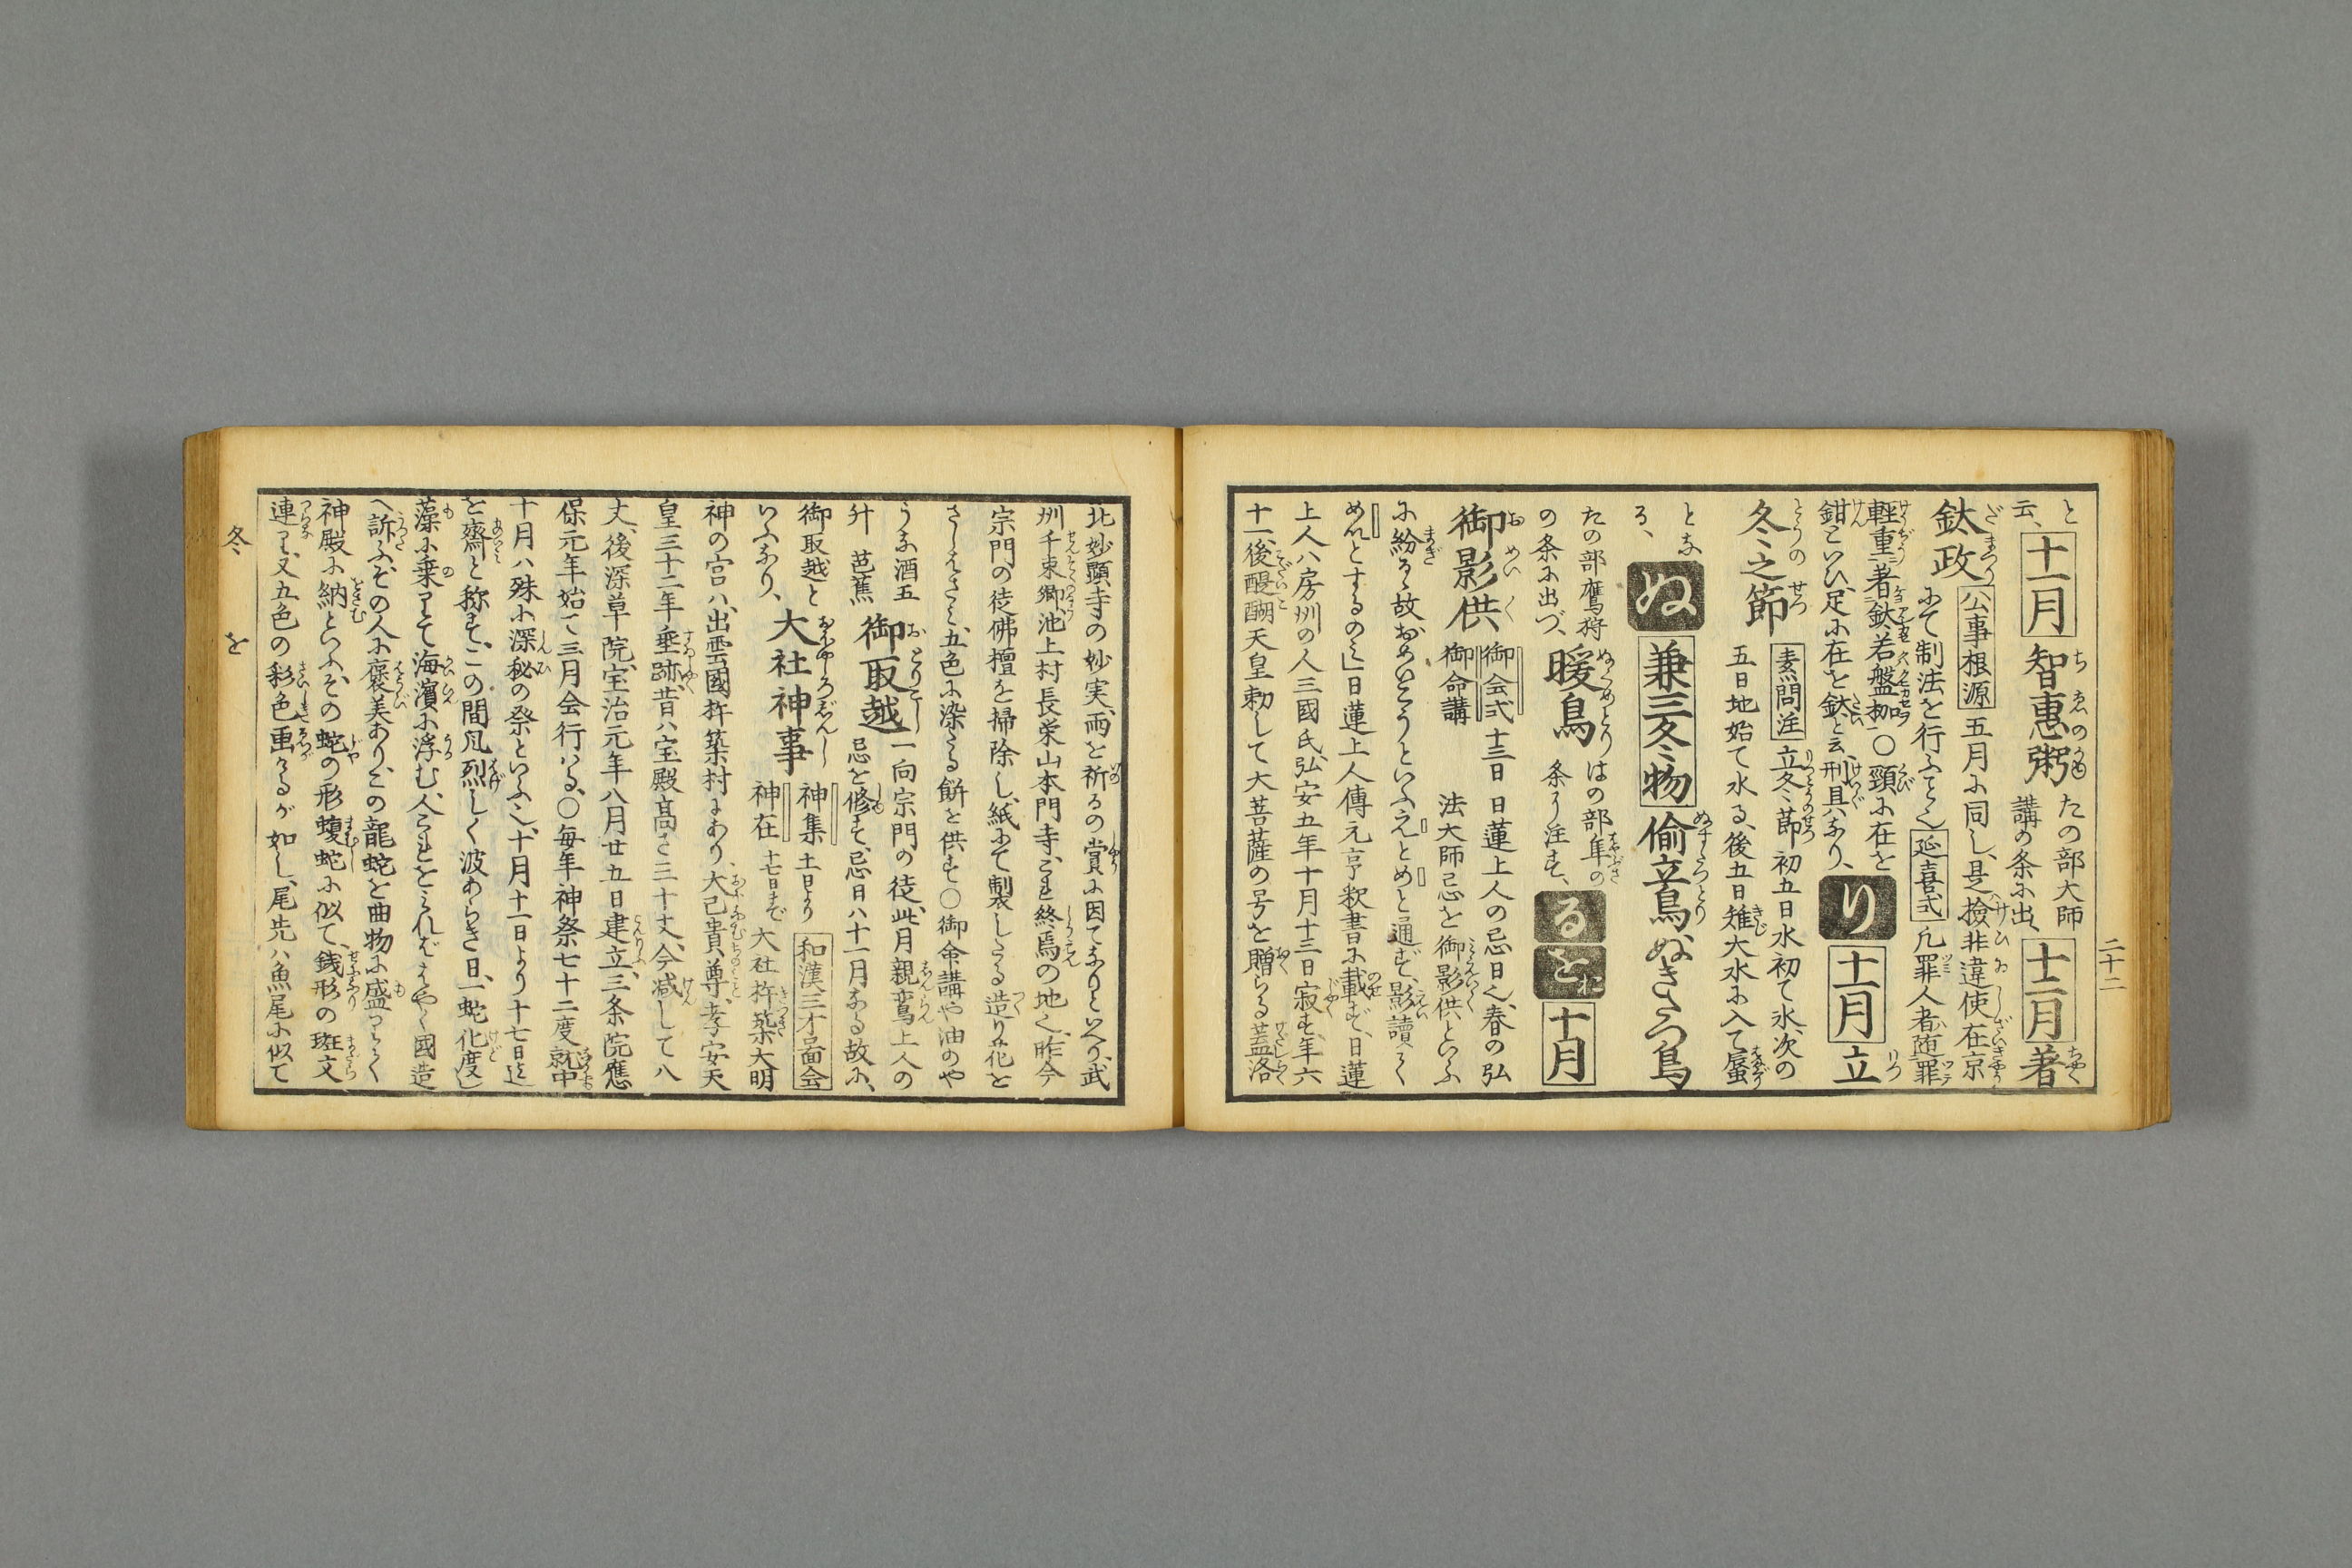 二十二
と
云、
十一月
智恵粥
たの部大師
講の条に出、
十二月
著
鈦政
公事根源
五月に同し、是検非違使在京
にて制法を行ふことく也
延喜式
凡罪人者随罪
軽重著鈦若盤枷○頸に在を
鉗といひ、足に在を鈦と云、刑具なり、
り
十月
立
冬之節
素問注
立冬之節初五日水初て氷、次の
五日地始て氷る、後五日雉大水に入て蜃
とな
る、
ぬ
兼三冬物
偸立鳥
ぬきたつ鳥
たの部鷹狩
の条に出づ、
暖鳥
はの部隼の
条に注す、
る
を
お
十月
御影供
御会式
御命講
十三日 日蓮上人の忌日也、春の弘
法大師忌を御影供といふ
に紛るゝ故おめいこうといふえとめと通ず、影讀く
めんとするの也」日蓮上人傳元亨釈書に載ず、日蓮
上人ハ房州の人三國氏弘安五年十月十三日寂す、年六
十一、後醍醐天皇勅して大菩薩の号を贈らる蓋洛
北妙顕寺の妙実、雨を祈るの賞に因てなりといへり、武
州千束郷池上村長栄山本門寺、これ終焉の地也、昨今
宗門の徒佛檀を掃除し、紙にて製したる造り花を
さしはさみ、五色に染たる餅を供す○御命講や油のや
うな酒五
升 芭蕉
御取越
一向宗門の徒、此月親鸞上人の
忌を修す、忌日ハ十一月なる故に、
御取越と
いふなり、
大社神事
神集
神在
十一日より
十七日まで
和漢三才圖会
大社杵築大明
神の宮ハ、出雲國杵築村にあり、大己貴尊、孝安天
皇三十二年垂跡、昔ハ宝殿高さ三十丈、今減して八
丈、後深草院、宝治元年八月廿五日建立、三条院應
保元年始て三月会行ハる、○毎年神祭七十二度就中
十月ハ殊に深秘の祭といふ也、十月十一日より十七日迄
を齋と称す、この間風烈しく波あらき日、一蛇化度し
藻に乗りて海濱に浮む、人これをとられバはやく國造
へ訴ふ、その人に褒美あり、この龍蛇を曲物に盛りて
神殿に納といふ、その蛇の形蝮蛇に似て、銭形の斑文
連り、又五色の彩色画けるが如し、尾先ハ魚尾に似て
冬
を